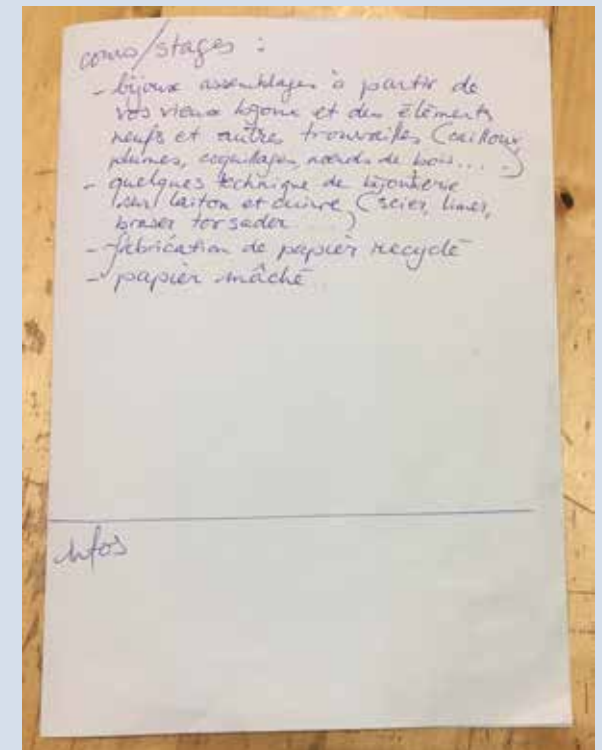 cours/stages :
- bijoux assemblages à partir de
vos vieux bijoux et des éléments
neufs et autres trouvailles (cailloux,
plumes, coquillages, nœuds de bois.... )
- quelques technique de bijouterie
sur laiton et cuivre (scier, limer,
braser torsader ....)
- fabrication de papier recyclé
- papier mâché
Infos